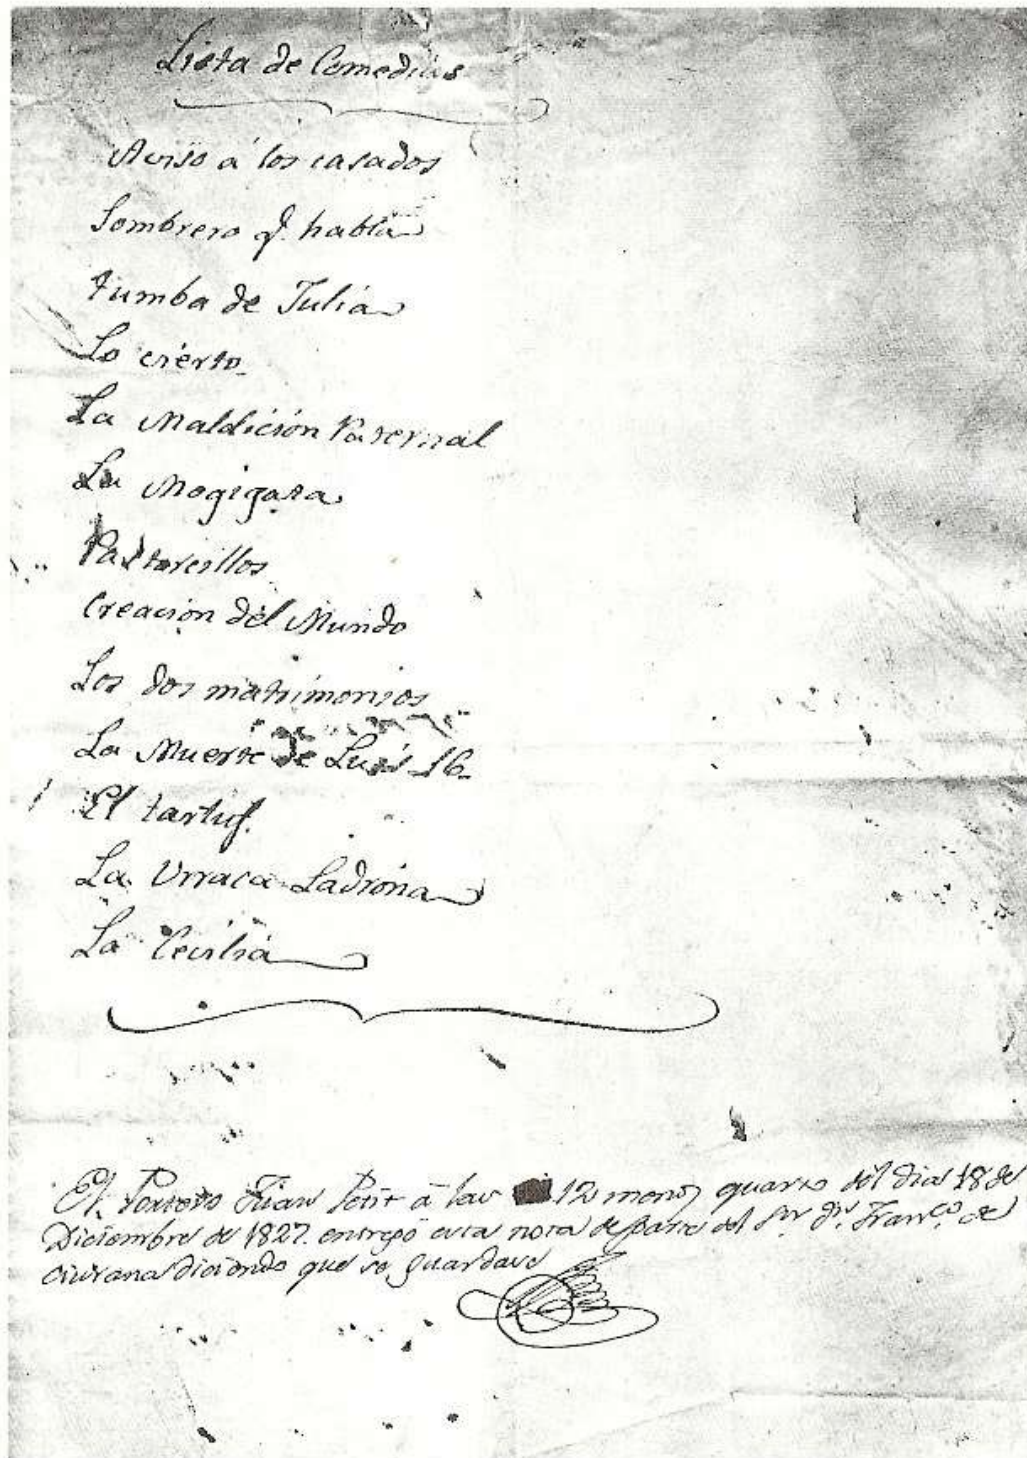 Lista de Comedias
Aviso á los casados
Sombrero q. habla
tumba de Julia
Lo cierto
La Maldición Paternal
La Mogigata
Pastorcillos
Creación del Mundo
Los dos matrimonios
La Muerte de Luis 16.
El tartuf.
La Urraca Ladrona
La Cecilia
El Portero Juan Petit á las 12 menos quarto del dia 18 de
Diciembre de 1827. entregó esta nota de parte del Sr. Dn. Franco. de
Ciurana diciendo que se guardase